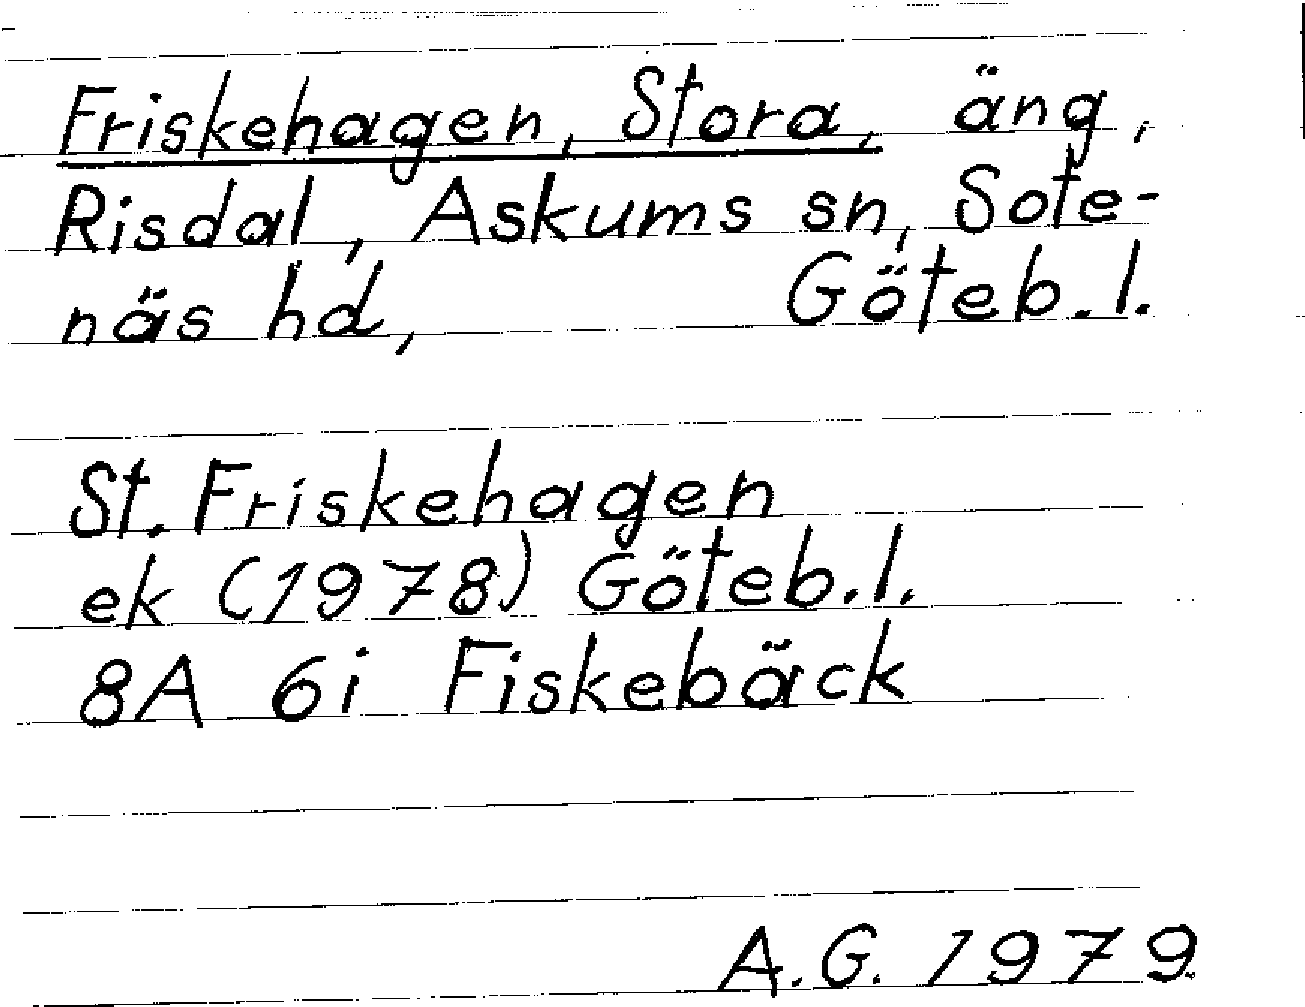 Friskehagen, Stora, äng,
Risdal, Askums sn, Sote-
näs hd, Göteb. l.
St. Friskehagen
ek (1978) Göteb. l.
8A 6i Fiskebäck
A.G. 1979